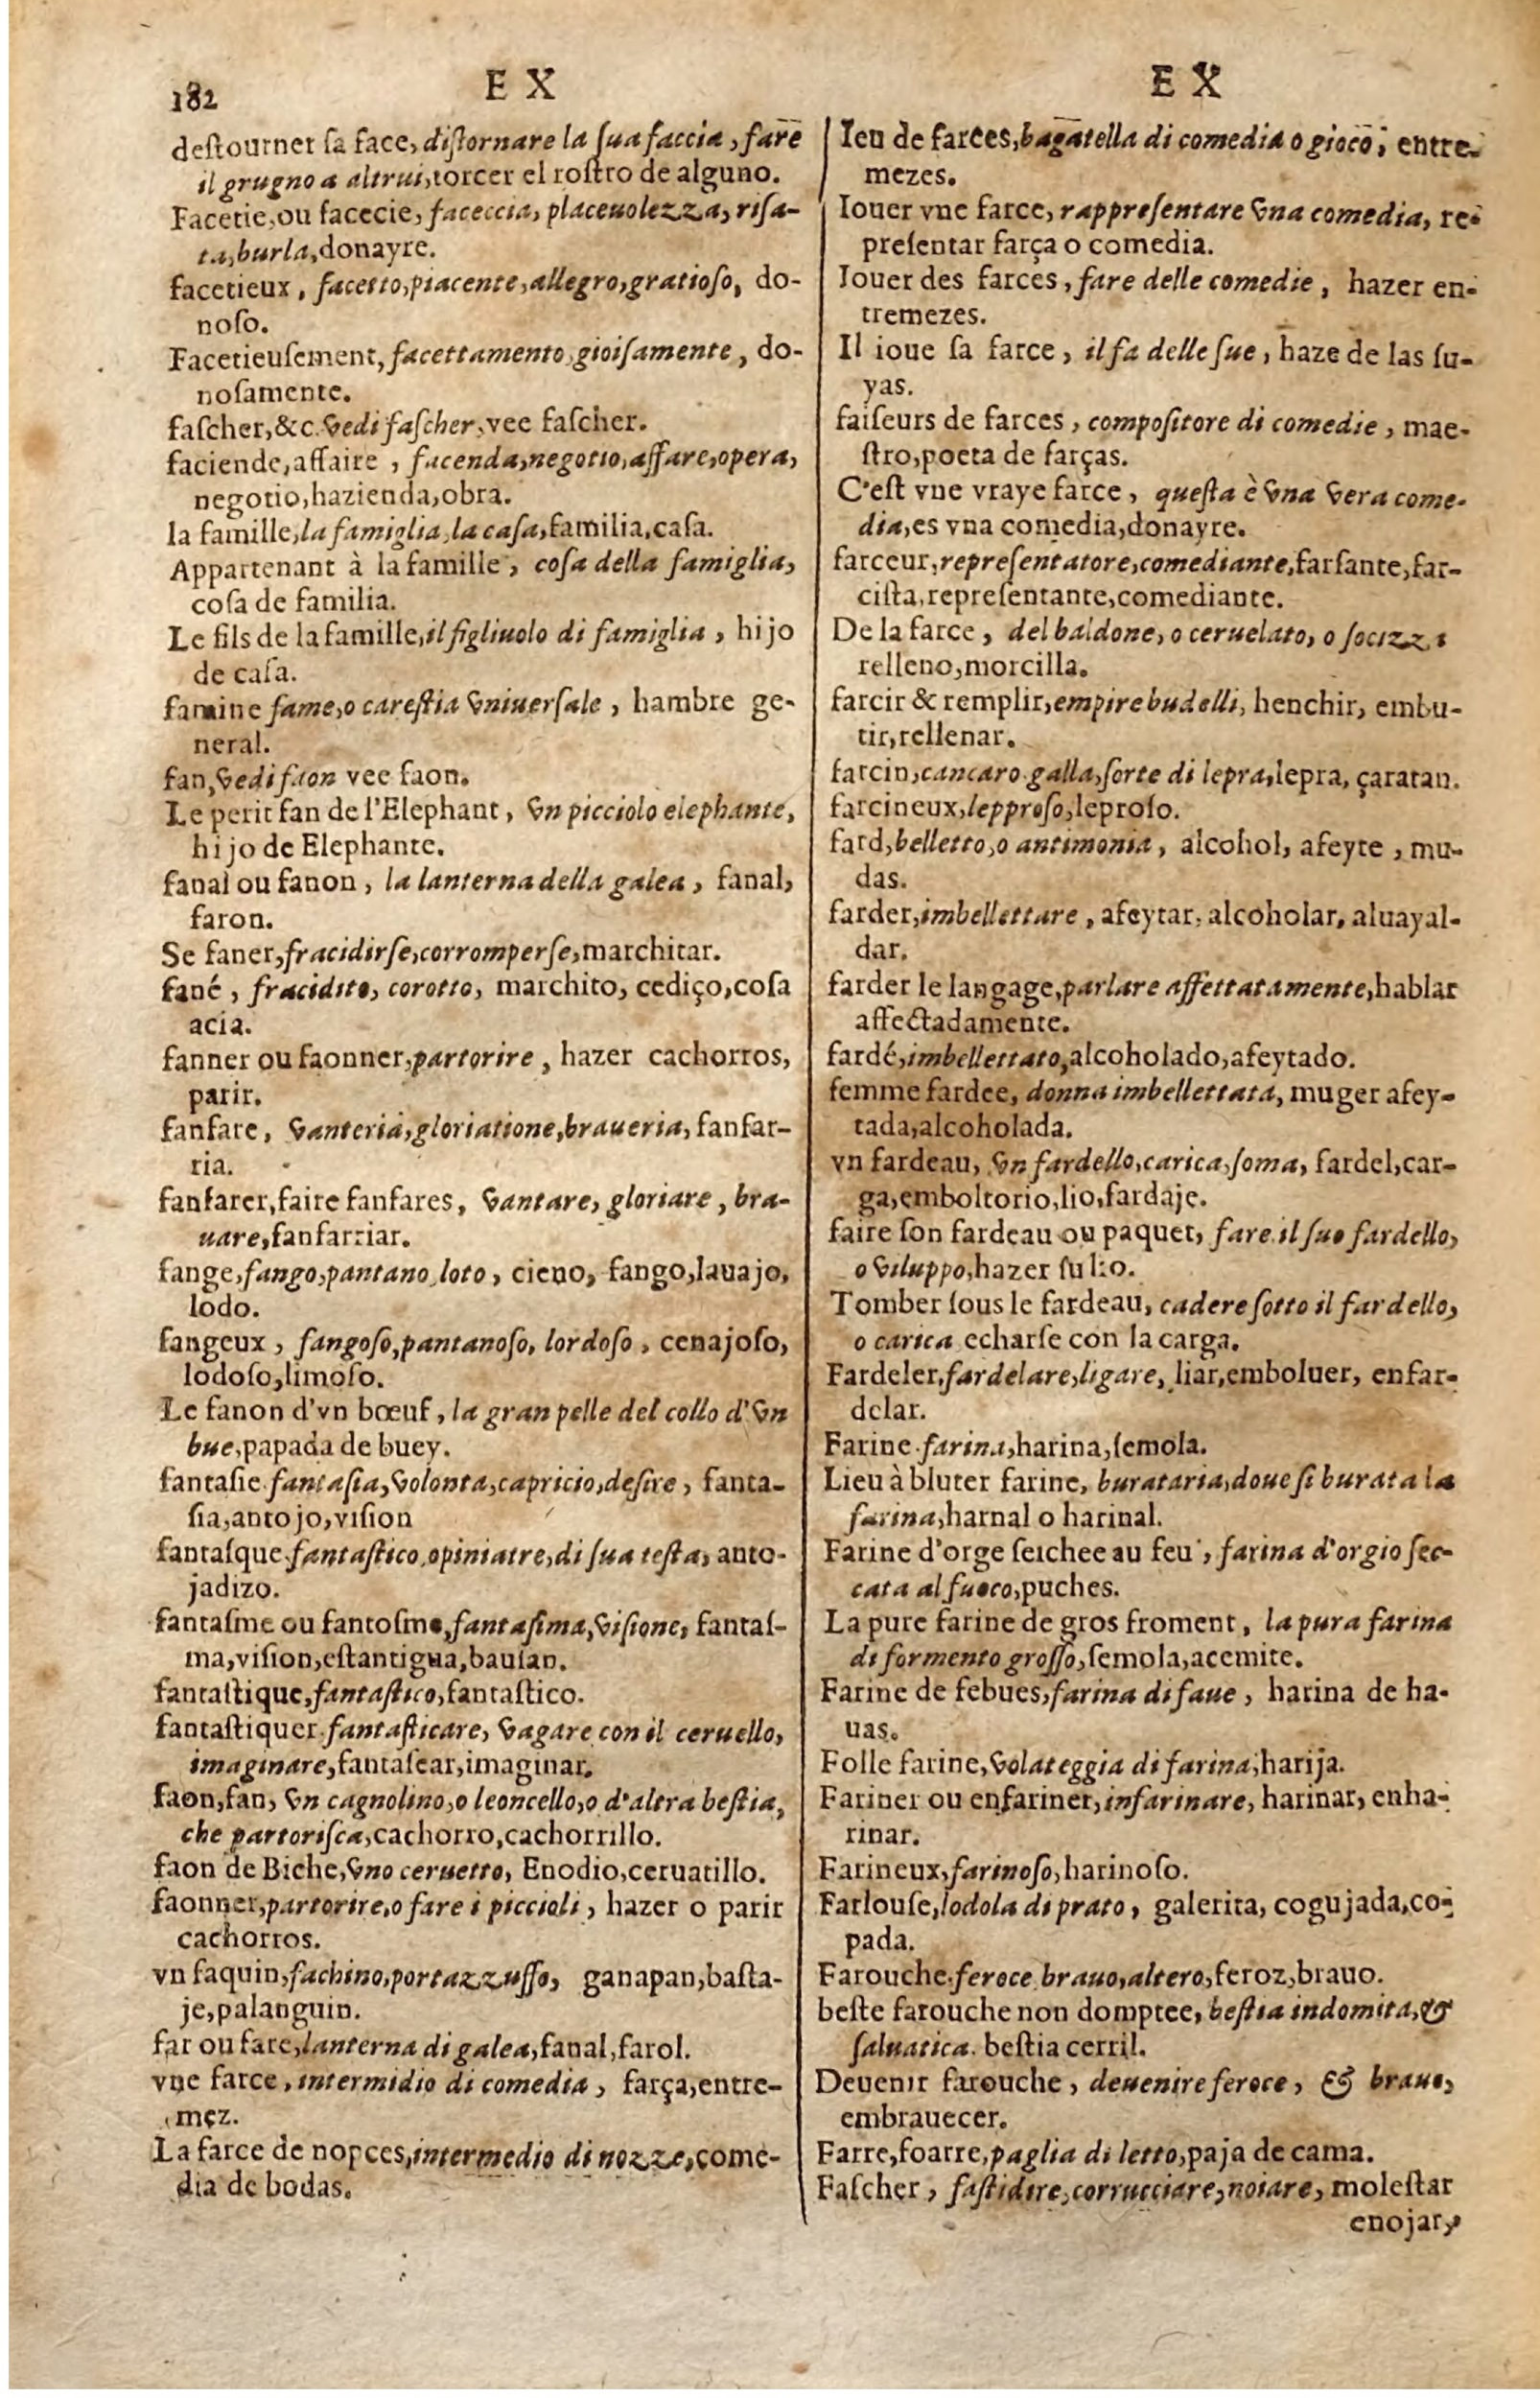 182
E X
deſtourner ſa face, diſtornare la ſua faccia, fare
il grugno a altrui, torcer el roſtro de alguno.
Facetie, ou facecie, faceccia, placeuolezza, riſa-
ta, burla, donayre.
facetieux, facetto, piacente, allegro, gratioſo, do-
noſo.
Facetieuſement, facettamento, gioiſamente, do-
noſamente.
faſcher, &c. vedi faſcher, vee faſcher.
faciende, affaire, facenda, negotio, affare, opera,
negotio, hazienda, obra.
la famille, la famiglia, la caſa, familia, caſa.
Appartenant à la famille, coſa della famiglia,
coſa de familia.
Le fils de la famille, il figliuolo di famiglia, hijo
de caſa.
famine fame, o careſtia vniuerſale, hambre ge-
neral.
fan, vedi faon vee faon.
Le petit fan de l'Elephant, vn picciolo elephante,
hijo de Elephante.
fanal ou fanon, la lanterna della galea, fanal,
faron.
Se faner, fracidirſe, corromperſe, marchitar.
fané, fracidito, corotto, marchito, cediço, coſa
acia.
fanner ou faonner, partorire, hazer cachorros,
parir.
fanfare, vanteria, gloriatione, braueria, fanfar-
ria.
fanfarer, faire fanfares, vantare, gloriare, bra-
uare, fanfarriar.
fange, fango, pantano, loto, cieno, fango, lauajo,
lodo.
fangeux, fangoſo, pantanoſo, lordoſo, cenajoſo,
lodoſo, limoſo.
Le fanon d'vn bœuf, la gran pelle del collo d'vn
bue, papada de buey.
fantaſie fantaſia, volonta, capricio, deſire, fanta-
ſia, antojo, viſion
fantaſque, fantaſtico, opiniatre, di ſua teſta, anto-
jadizo.
fantaſme ou fantoſme, fantaſima, viſione, fantaſ-
ma, viſion, eſtantigua, bauſan.
fantaſtique, fantaſtico, fantaſtico.
fantaſtiquer fantaſticare, vagare con il ceruello,
imaginare, fantaſear, imaginar.
faon, fan, vn cagnolino, o leoncello, o d'altra beſtia,
che partoriſca, cachorro, cachorrillo.
faon de Biche, vno ceruetto, Enodio, ceruatillo.
faonner, partorire, o fare i piccioli, hazer o parir
cachorros.
vn faquin, fachino, portazzuffo, ganapan, baſta-
je, palanguin.
far ou fare, lanterna di galea, fanal, farol.
vne farce, intermidio di comedia, farça, entre-
mez.
La farce de nopces, intermedio di nozze, come-
dia de bodas.
E X
Ieu de farces, bagatella di comedia o gioco, entre-
mezes.
Iouer vne farce, rappreſentare vna comedia, re-
preſentar farça o comedia.
Iouer des farces, fare delle comedie, hazer en-
tremezes.
Il ioue ſa farce, il fa delle ſue, haze de las ſu-
yas.
faiſeurs de farces, compoſitore di comedie, mae-
ſtro, poeta de farças.
C'eſt vne vraye farce, queſta è vna vera come-
dia, es vna comedia, donayre.
farceur, repreſentatore, comediante, farſante, far-
ciſta, repreſentante, comediante.
De la farce, del baldone, o ceruelato, o ſocizzi
relleno, morcilla.
farcir & remplir, empire budelli, henchir, embu-
tir, rellenar.
farcin, cancaro galla, ſorte di lepra, lepra, çaratan.
farcineux, lepproſo, leproſo.
fard, belletto, o antimonia, alcohol, afeyte, mu-
das.
farder, imbellettare, afeytar, alcoholar, aluayal-
dar.
farder le langage, parlare affettatamente, hablar
affectadamente.
fardé, imbellettato, alcoholado, afeytado.
femme fardee, donna imbellettata, muger afey-
tada, alcoholada.
vn fardeau, vn fardello, carica, ſoma, fardel, car-
ga, emboltorio, lio, fardaje.
faire ſon fardeau ou paquet, fare il ſuo fardello,
o viluppo, hazer ſu lio.
Tomber ſous le fardeau, cadere ſotto il fardello,
o carica echarſe con la carga.
Fardeler, fardelare, ligare, liar, emboluer, enfar-
delar.
Farine farina, harina, ſemola.
Lieu à bluter farine, burataria, doue ſi burata la
farina, harnal o harinal.
Farine d'orge ſeichee au feu, farina d'orgio ſec-
cata al fuoco, puches.
La pure farine de gros froment, la pura farina
di formento groſſo, ſemola, acemite.
Farine de febues, farina di faue, harina de ha-
uas.
Folle farine, volateggia di farina, harija.
Fariner ou enfariner, infarinare, harinar, enha-
rinar.
Farineux, farinoſo, harinoſo.
Farlouſe, lodola di prato, galerita, cogujada, co-
pada.
Farouche feroce brauo, altero, feroz, brauo.
beſte farouche non domptee, beſtia indomita, &
ſaluatica. beſtia cerril.
Deuenir farouche, deuenire feroce, & brauo,
embrauecer.
Farre, foarre, paglia di letto, paja de cama.
Faſcher, faſtidire, corrucciare, noiare, moleſtar
enojar,